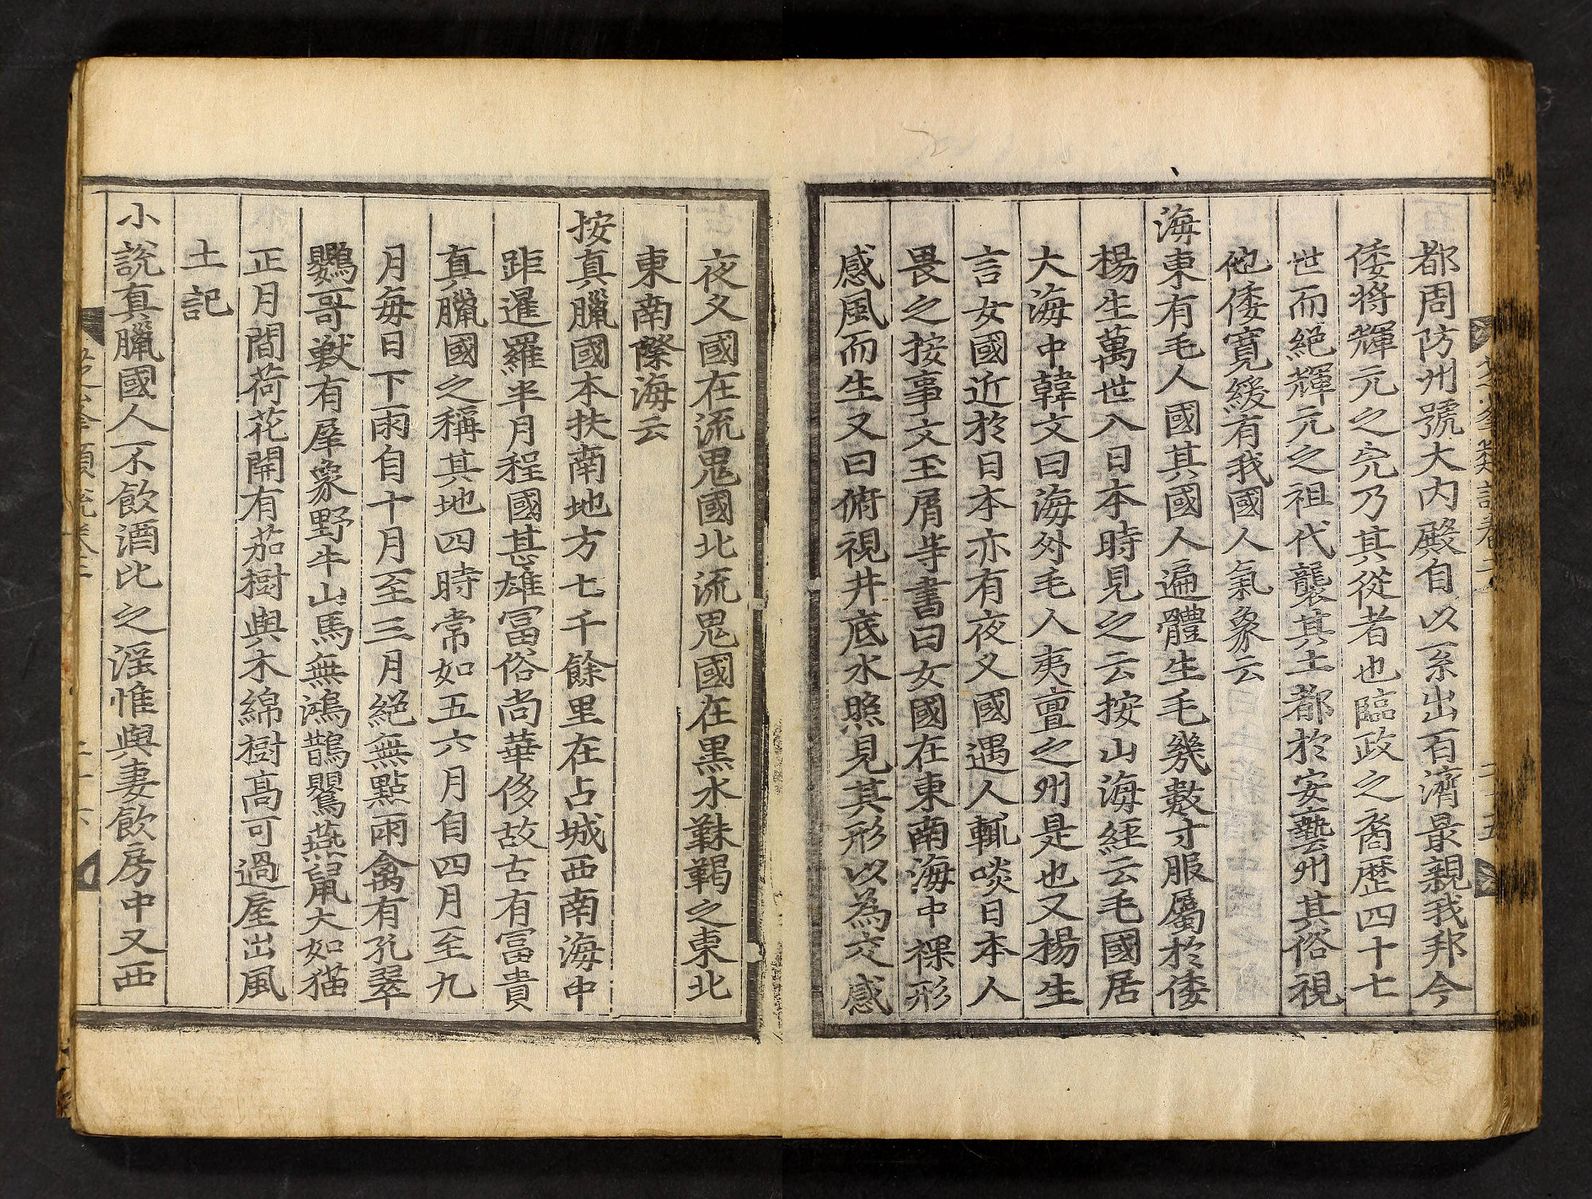 都周防州號大內殿自以系出百濟最親我邦今
倭將輝元之先乃其從者也臨政之裔歷四十七
世而絕輝元之祖代襲其土都於安藝州其俗視
他倭寬緩有我國人氣象云
海東有毛人國其國人遍體生毛幾數寸服屬於倭
楊生萬世入日本時見之云按山海經云毛國居
大海中韓文曰海外毛人夷亶之州是也又楊生
言女國近於日本亦有夜叉國遇人輒啖日本人
畏之按事文玉屑等書曰女國在東南海中裸形
感風而生又曰俯視井底水照見其形以為交感
芝峯類說卷二
二十五
夜叉國在流鬼國北流鬼國在黑水靺鞨之東北
東南際海云
按真臘國本扶南地方七千餘里在占城西南海中
距暹羅半月程國甚雄富俗尚華侈故古有富貴
真臘國之稱其地四時常如五六月自四月至九
月每日下雨自十月至三月絕無點雨禽有孔翠
鸚哥獸有犀象野牛山馬無鴻鵲鸎燕鼠大如猫
正月間荷花開有茄樹與木綿樹高可過屋出風
土記
小說真臘國人不飲酒比之淫惟與妻飲房中又西
芝峯類說卷二
二十六